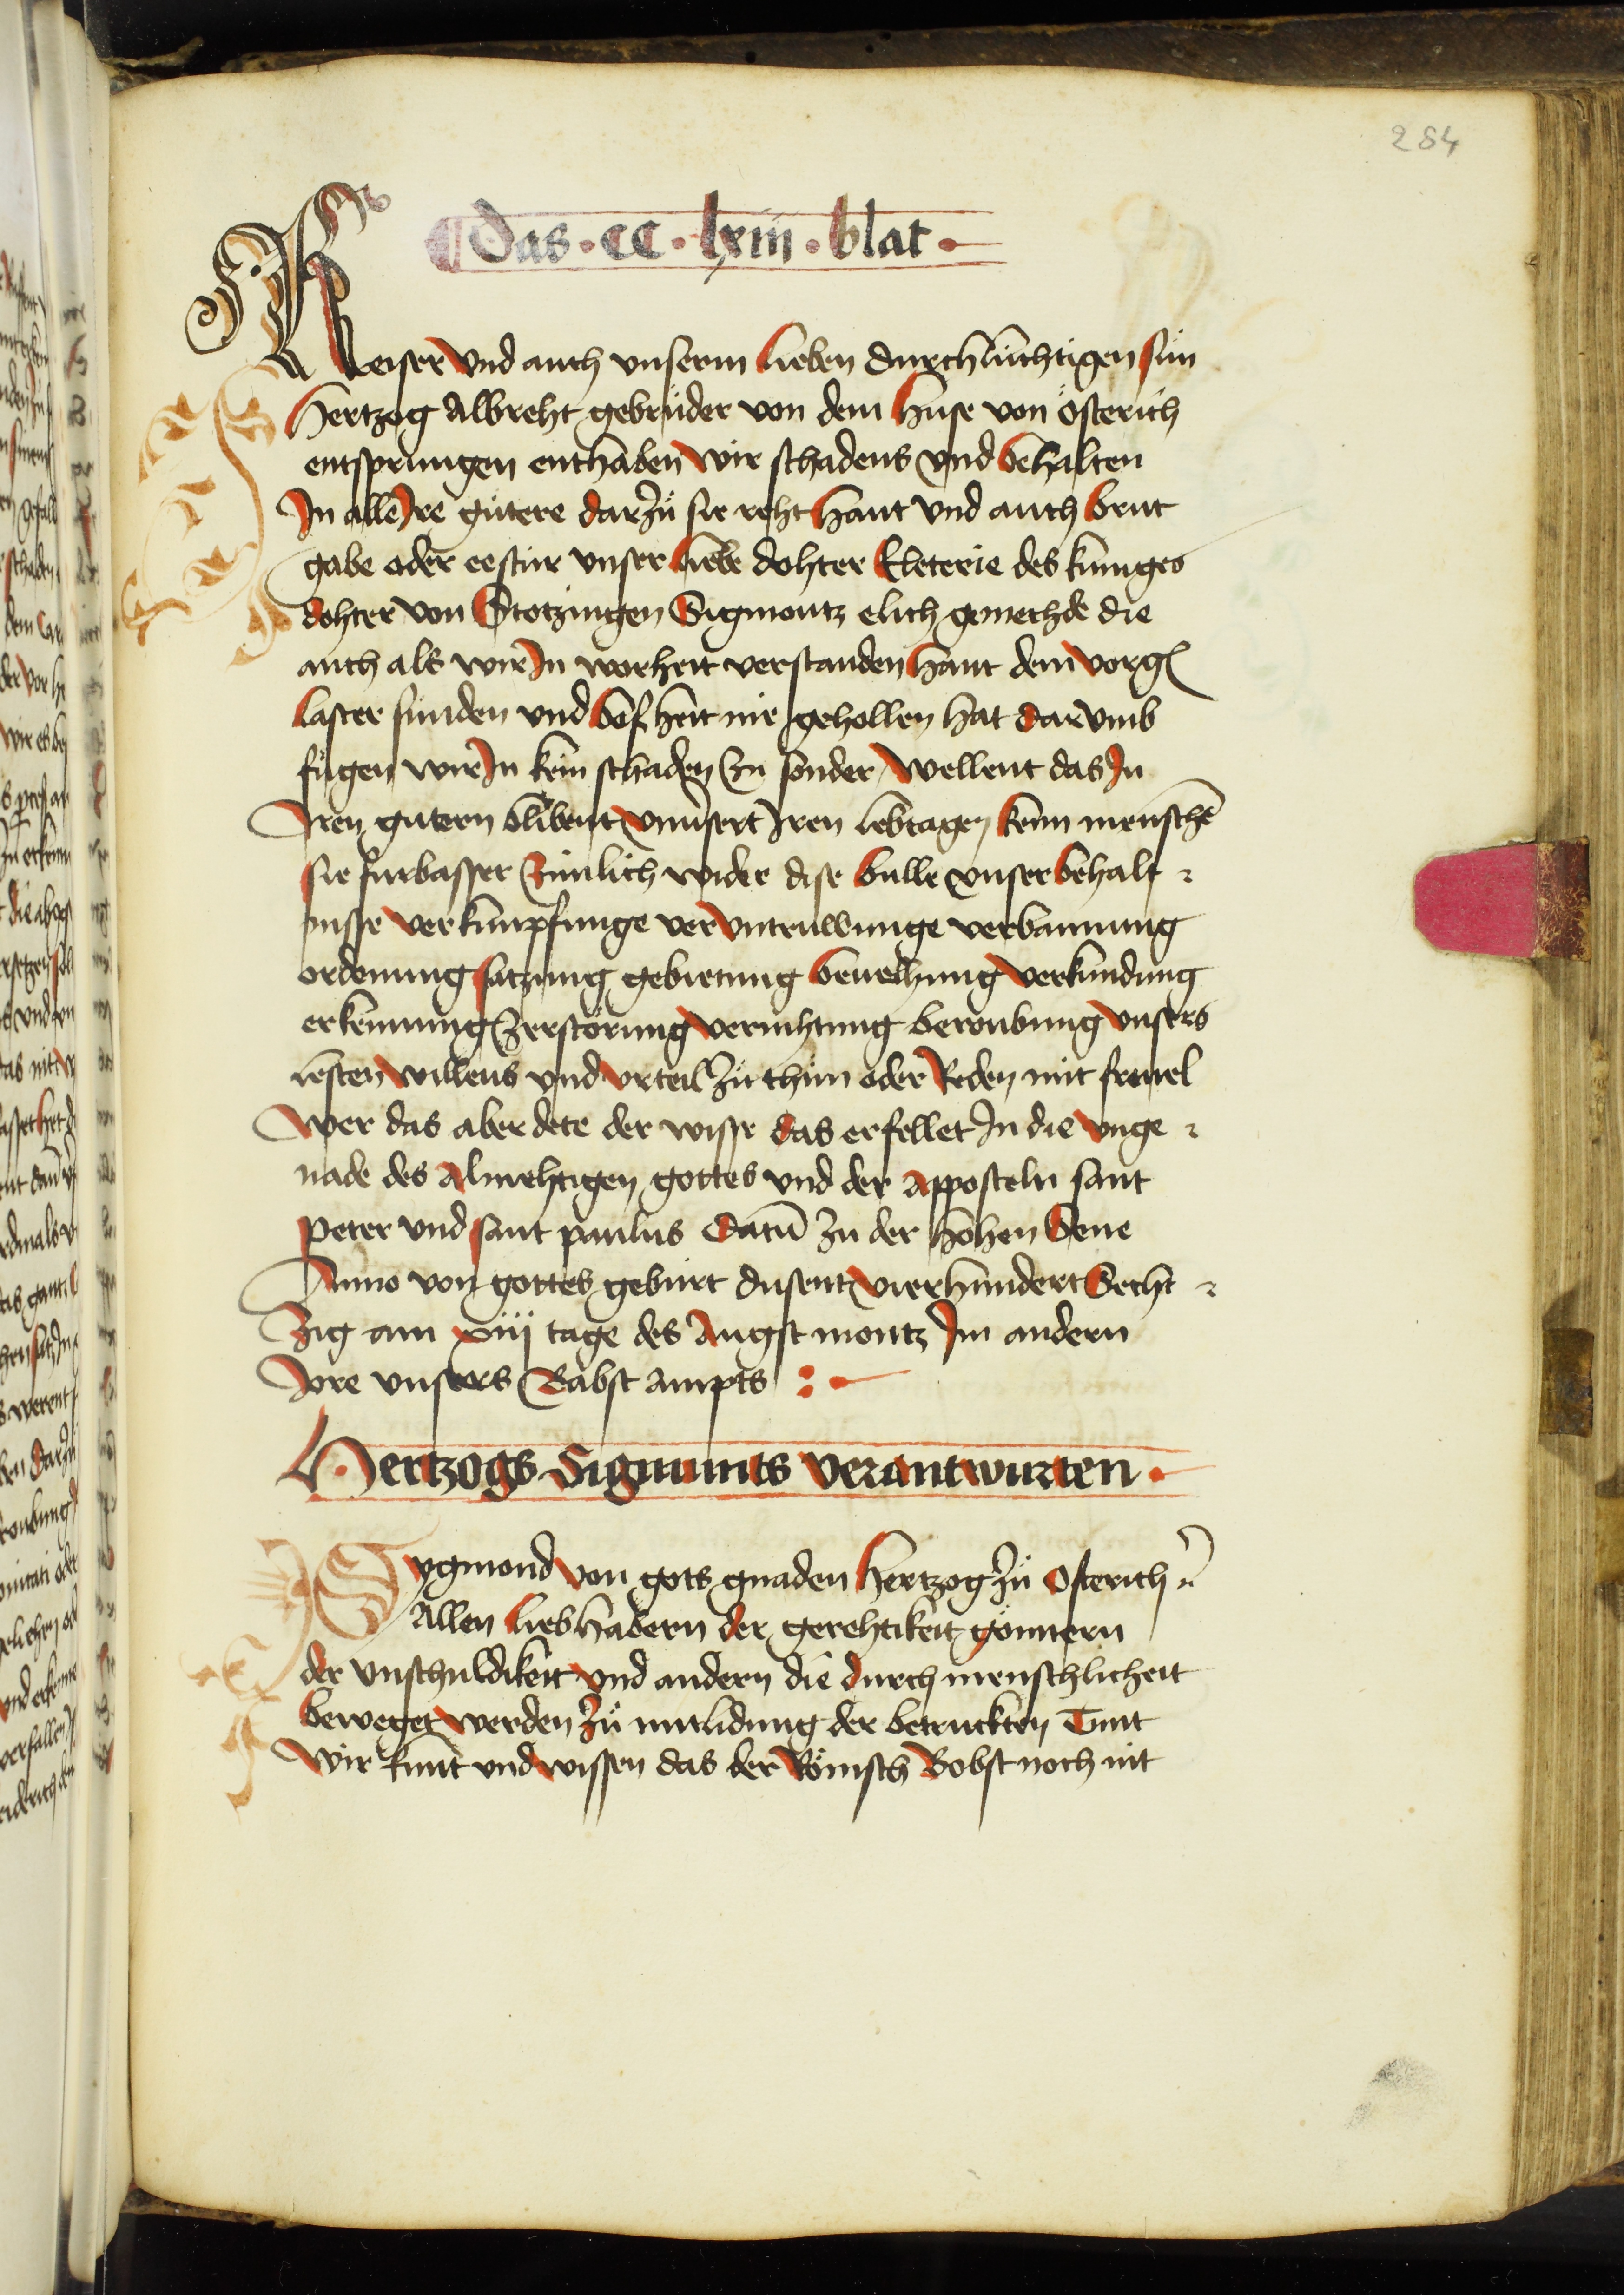 284
Das · CC · lxiii · blat ·
Keiser vnd auch vnserm lieben durchlúchtigen sún
Hertzog Albreht gebrúder von dem huse von Österich
entsprungen enthaben wir schadens vnd behalten
In alle Ire gútere darzů sie reht hant vnd auch brut
gabe oder eestúr vnser liebe dohter Eleterie des kúniges
dohter von Stotzingen Sigmontz elich gemechde die
auch als wir In worheit verstanden hant dem vorg
laster sunden vnd bosheit nie gehollen hat darvmb
fúgen wir In kein schaden zu sonder wellent das In
Iren gútern blibent vnuersert Iren lebtagen keim menschē
sie furbasser zimlich wider dise bulle vnser behalt
nisse verknúpfunge vervntruwunge verbannung
ordenung satzung gebietung beuelhung verkúndung
erkennung zerstörung vernihtung beroubung vnsers
resten willens vnd vrteil zů thún oder Reden mit freuel
wer das aber dete der wisse das er fellet In die vnge
nade des almehtigen gottes vnd der apposteln sant
peter vnd sant paulus Datū zu der hohen Sene
Anno von gottes gebúrt dusent vierhundert Secht
zig am xiiij tage des Augst montz Im andern
Jore vnsers Babst ampts
Hertzogs Sigmunts verantwurten ·
Sygmond von gots gnaden hertzog zů Osterich
Allen liebhabern der gerehtikeit gönnern
der vnschuldikeit vnd andern die durch menschlicheit
beweget werden zů mitlidung der betruckten Tunt
wir kunt vnd wissen das der Römisch Bobst noch nit